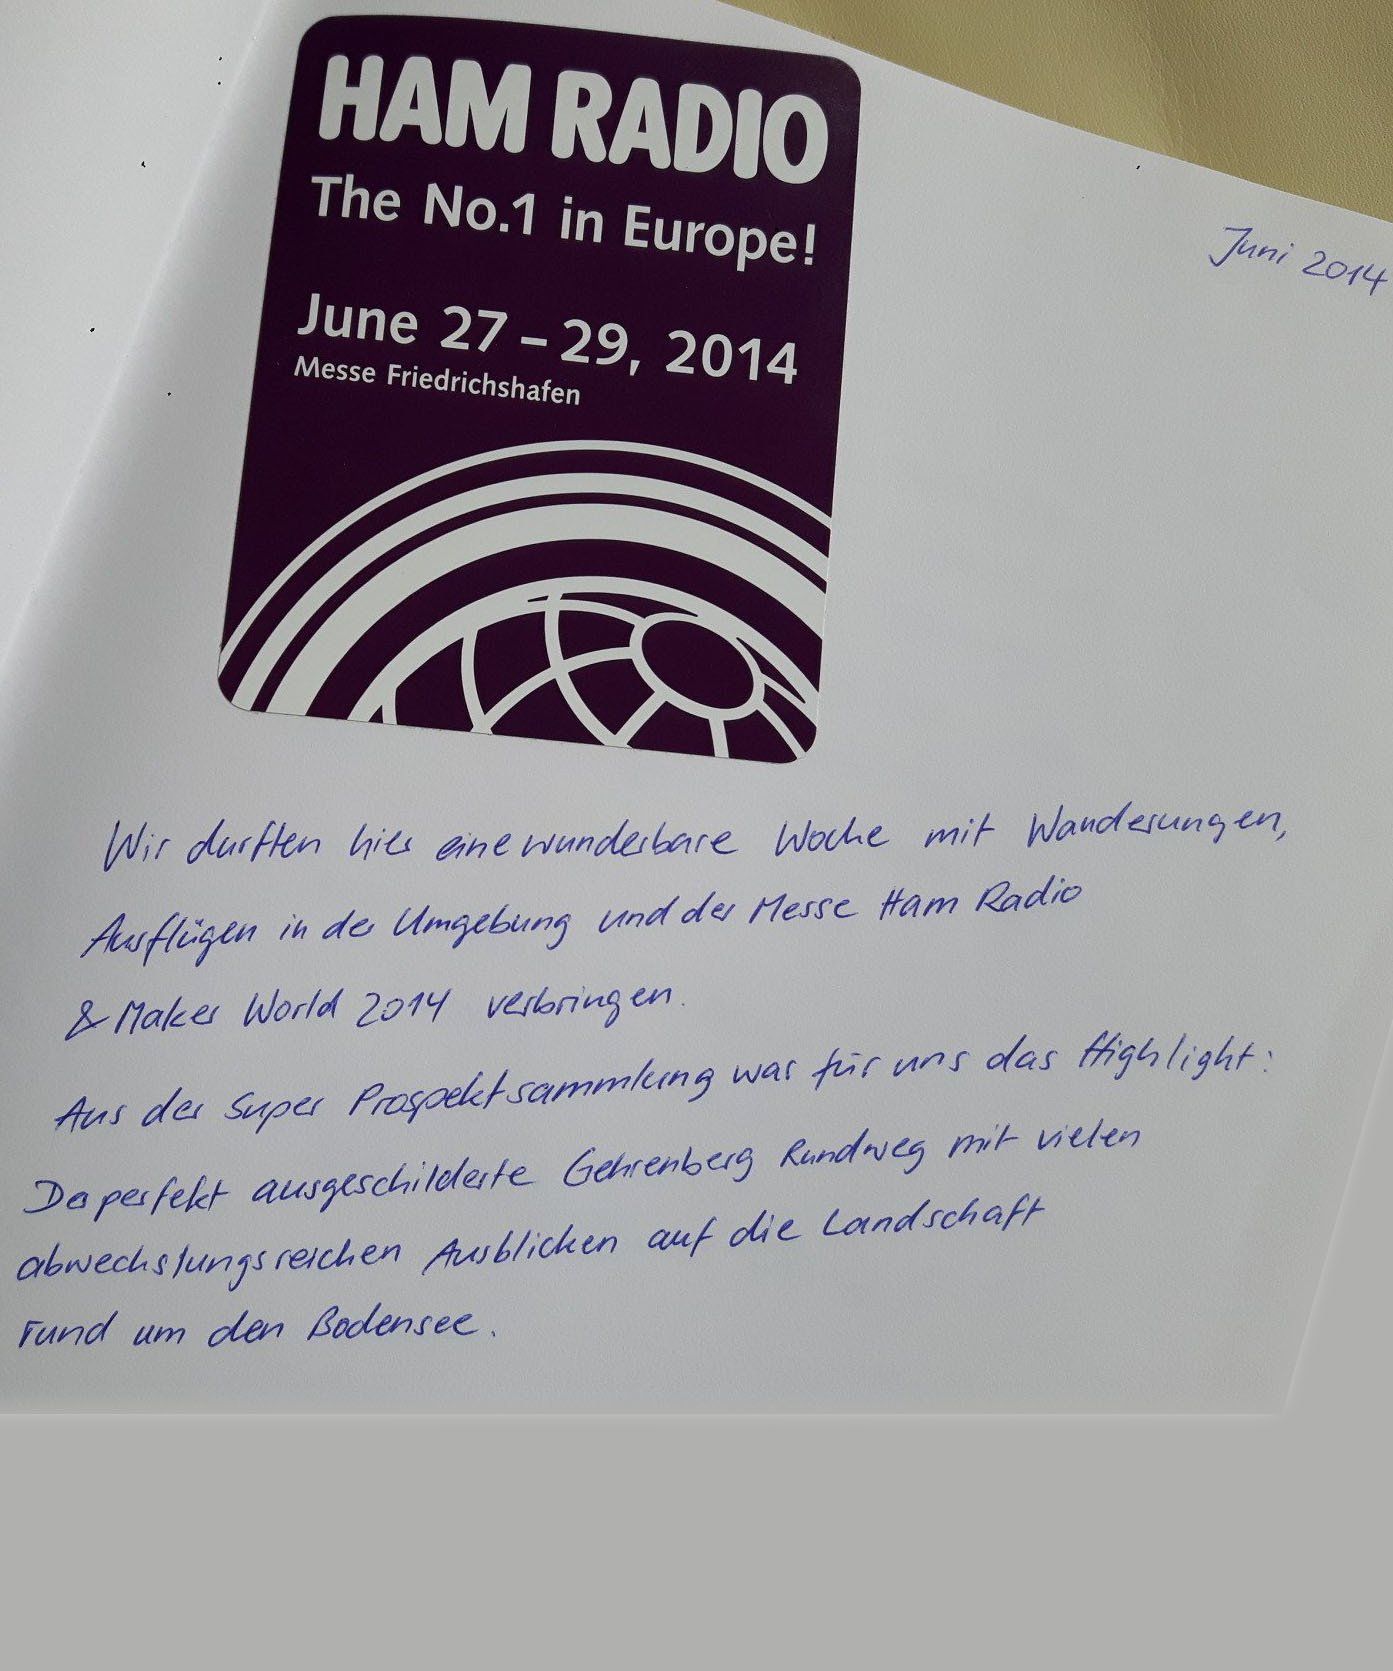 HAM RADIO
The No.1 in Europe!
June 27 – 29, 2014
Messe Friedrichshafen
Juni 2014
Wir durften hier eine wunderbare Woche mit Wanderungen,
Ausflügen in der Umgebung und der Messe Ham Radio
& Maker World 2014 verbringen.
Aus der Super Prospektsammlung war für uns das Highlight:
Der perfekt ausgeschilderte Gehrenberg Rundweg mit vielen
abwechslungsreichen Ausblicken auf die Landschaft
rund um den Bodensee.